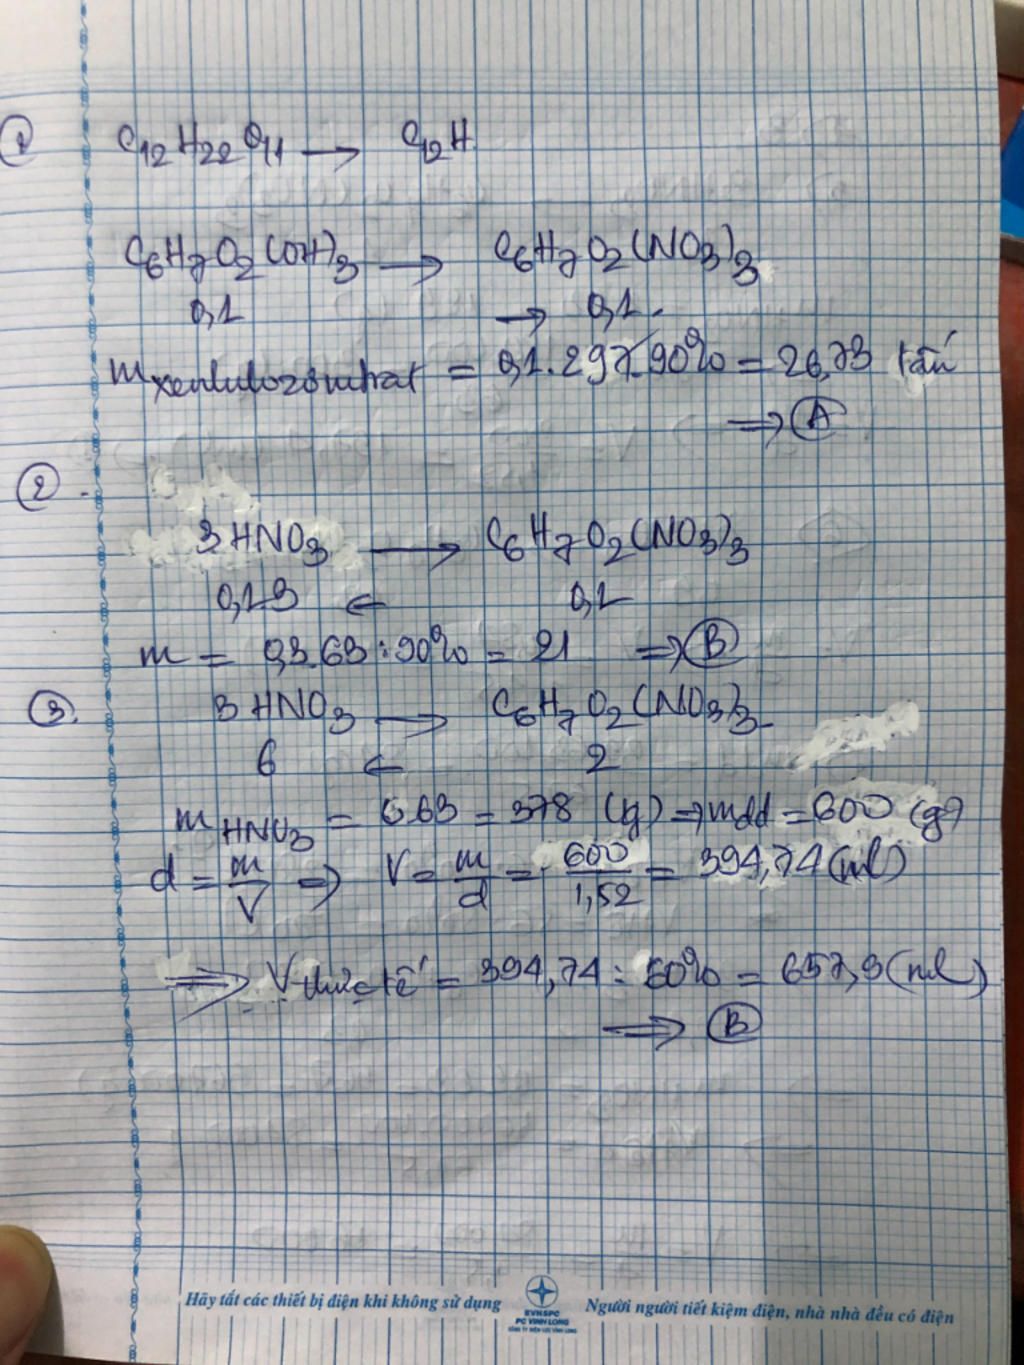 ① C12H22O11 → C12H
C6H7O2(OH)3 → C6H7O2(NO3)3
0,1 → 0,1.
mxenlulozơnitrat = 0,1.297.90% = 26,73 tấn
⇒ Ⓐ
②.
3HNO3 → C6H7O2(NO3)3
0,13 ← 0,1
m = 0,3.63:90% = 21 ⇒ Ⓑ
③. 3HNO3 → C6H7O2(NO3)3
6 ← 2
mHNO3 = 6.63 = 378 (g) ⇒ mdd = 600 (g)
d = m/V ⇒ V = m/d = 600/1,52 = 394,74 (ml)
⇒ Vthực tế = 394,74 : 60% = 657,9 (ml)
⇒ Ⓑ
Hãy tắt các thiết bị điện khi không sử dụng
EVNSPC
PC VINH LONG
CÔNG TY ĐIỆN LỰC VĨNH LONG
Người người tiết kiệm điện, nhà nhà đều có điện